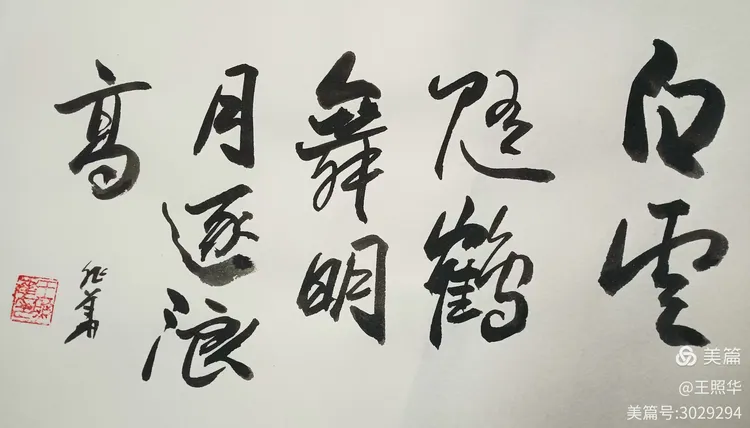 白雲
隨鶴
舞明
月逐浪
高
美篇
@王照华
美篇号:3029294